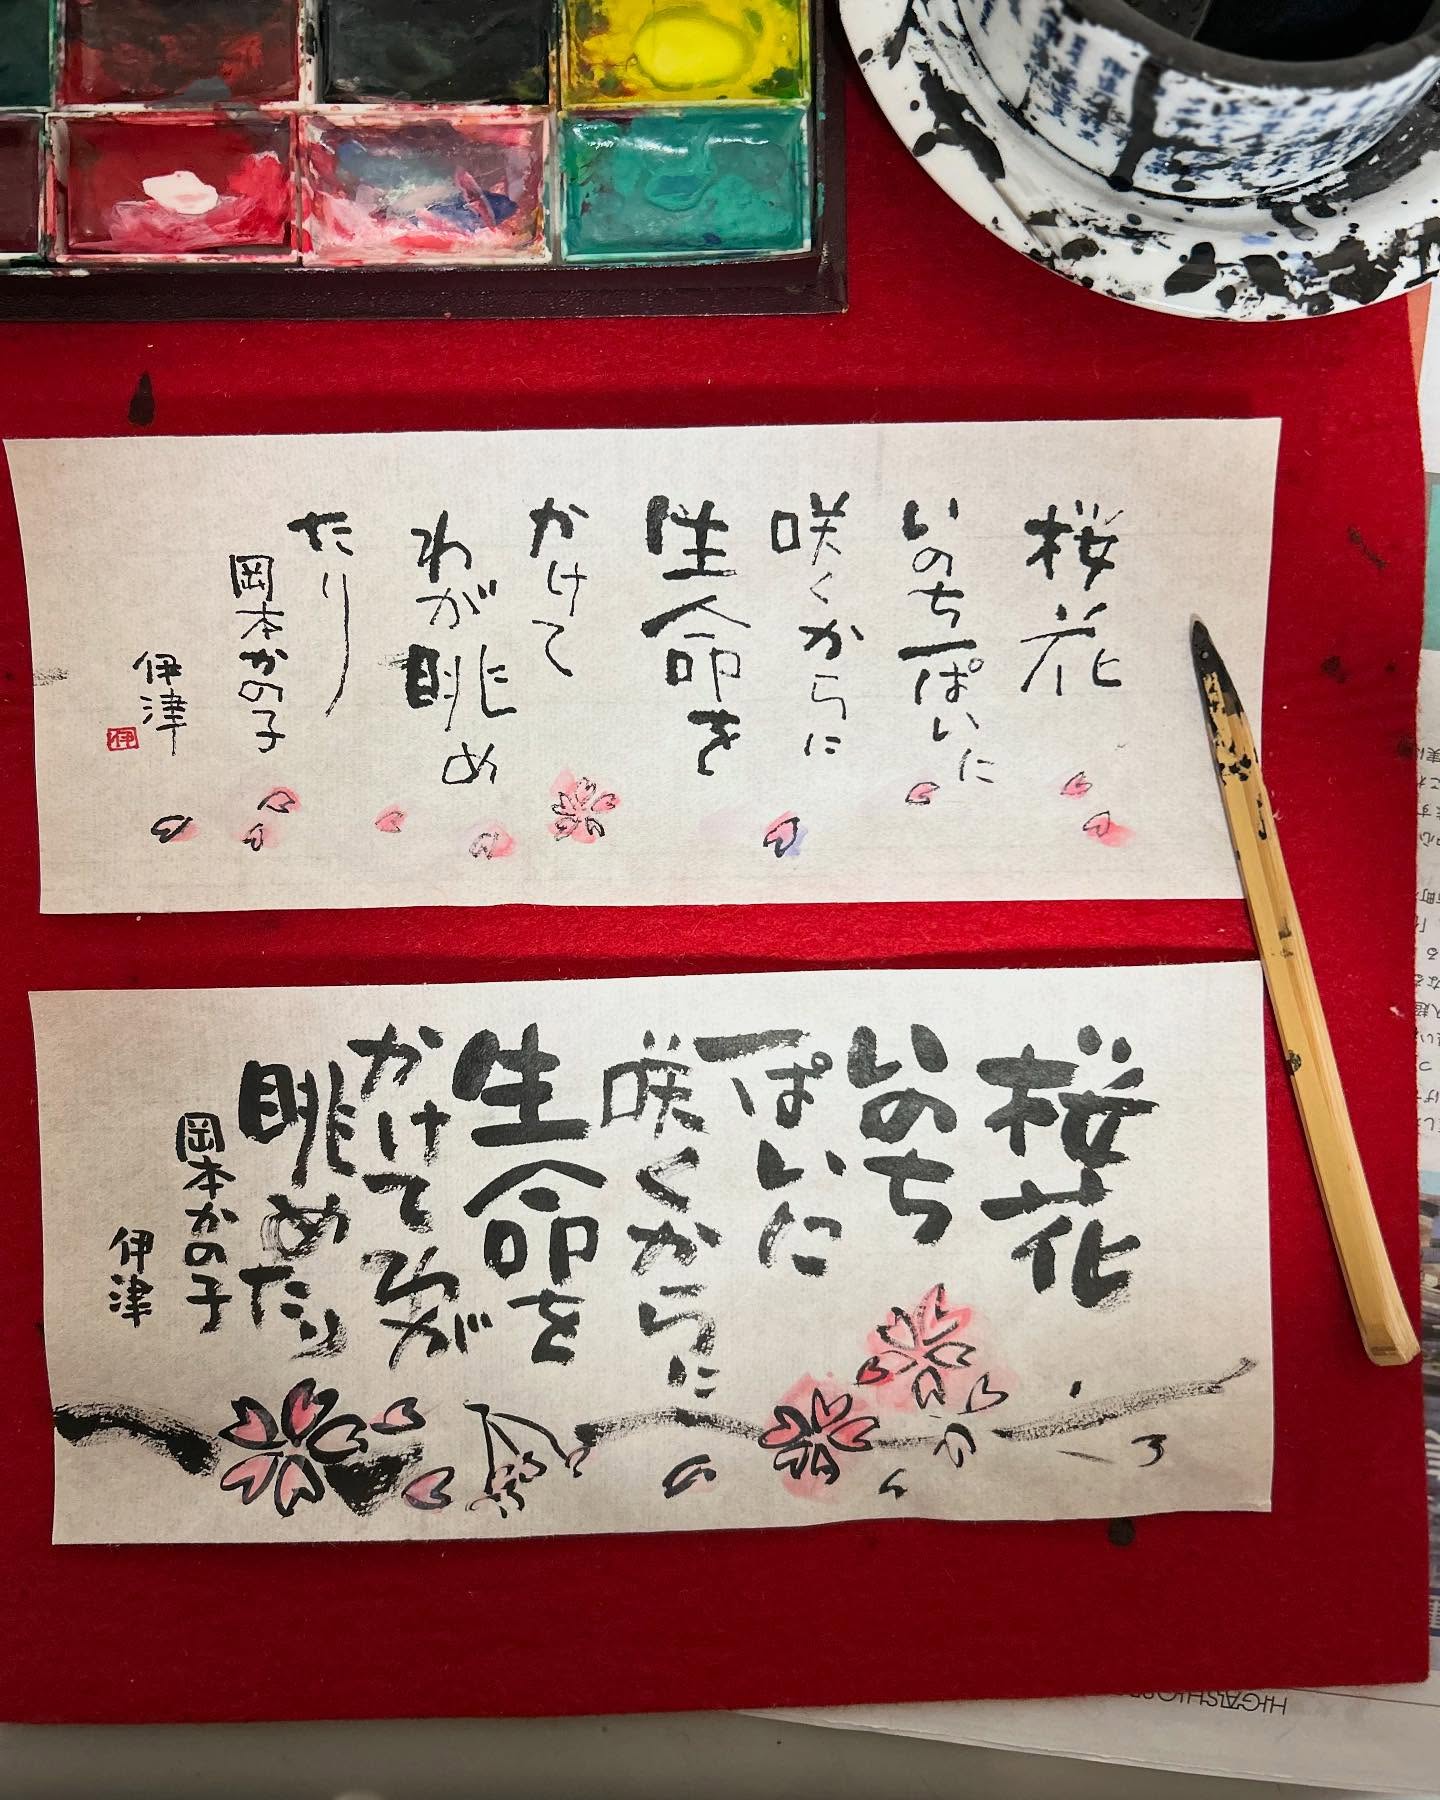 桜花
いのち一ぱいに
咲くからに
生命を
かけて
わが眺め
たり
岡本かの子
伊津
伊
桜花
いのち
一ぱいに
咲くからに
生命を
かけてわが
眺めたり
岡本かの子
伊津